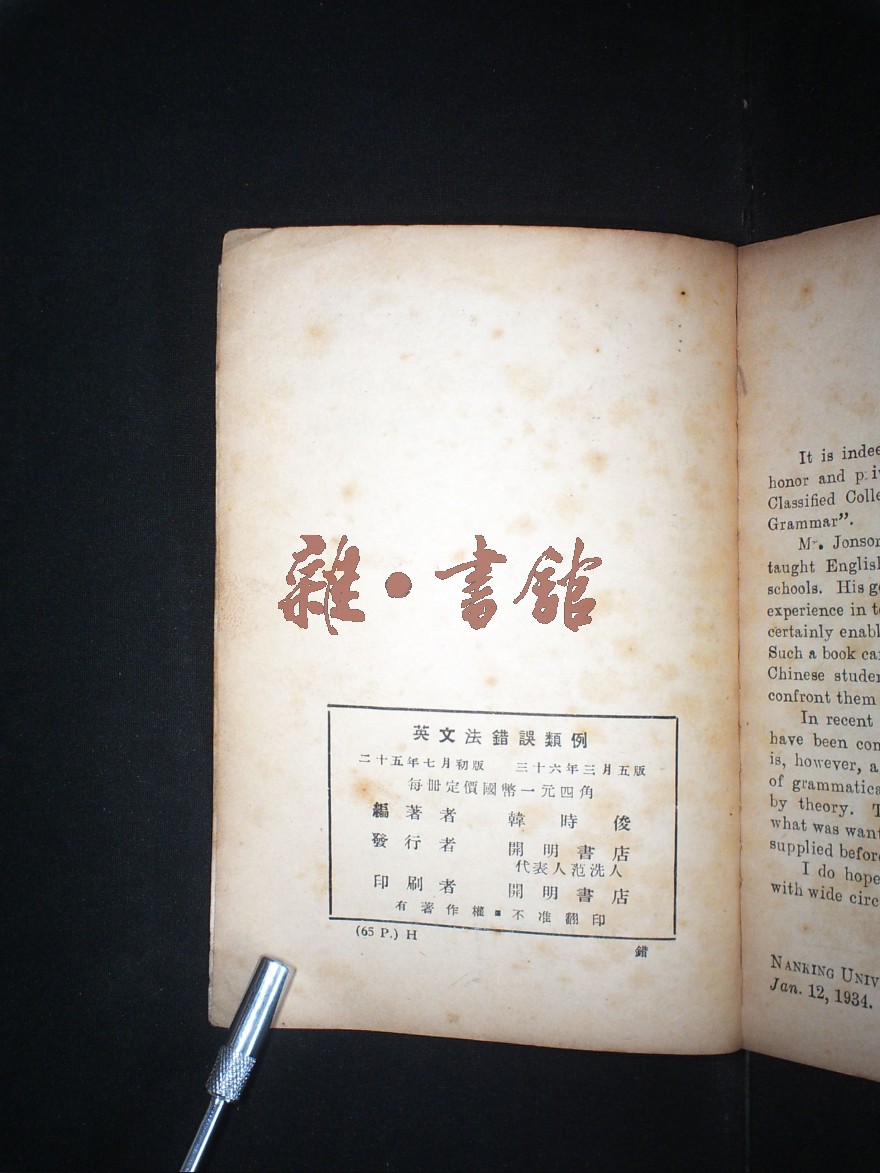 雜·書館
英文法錯誤類例
二十五年七月初版 三十六年三月五版
每冊定價國幣一元四角
編著者 韓時俊
發行者 開明書店
代表人范洗人
印刷者 開明書店
有著作權■不准翻印
(65 P.) H
錯
It is
honor and
Classified
Grammar”.
Mr.
taught English
schools. His
experience in
certainly
Such a book
Chinese
confront them
In recent
have been
is, however, a
of
by theory.
what was
supplied
I do hope
with wide
NANKING
Jan. 12, 1934.